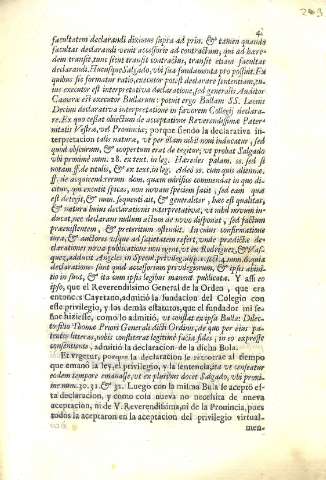 4
facultatem declarandi diximus supra ad prin. & tamen quando
facultas declarandi venit accessorie ad contractum, qui ad hære-
dem transit, tunc sicut transit contractus, transit etiam facultas
declarandi. Hucusque Salgado, vbi sua fundamenta pro possint. Ex
quibus sic formatur ratio, executor potest declarare sententiam,
ius executor est interpretativa declaratione, sed generalis Auditor
Cameræ est executor Bullarum: potuit ergo Bullam SS. Leonis
Decimi declarativa interpretatione in favorem Collegij declara-
re. Ex quo cessat obiectum de acceptatione Reverendissimæ Pater-
nitatis Vestræ, vel Provinciæ; porque siendo la declarativa in-
terpretacion talis naturæ, vt per illam nihil novi inducatur, sed
quod obscurum, & vt oportere erat detegitur, vt probat Salgado
vbi proximè num. 28. ex text. in leg. Hæredes palam. 21. sed si
notam ff. de testis, & ex text. in leg. Adeo 22. cum quis ditente,
ff. de acquirend. rerum dom. quam miriffice commendat in quo di-
citur, qui excutit spicas, non novam speciem facit, sed eam quæ
est detegit, & num. sequenti ait, & generaliter, hæc est qualitas,
& natura huius declarationis interpretativæ, vt nihil novum in-
ducat, nec declarans nullum actum de novo disponet, sed factum
præexistentem, & præteritum ostendit. In cuius confirmatione
iura, & auctores vsque ad satietatem refert, vnde prædictæ de-
clarativæ nova publicatione non egent, vt ex Rodriguez, & Vas-
quez, adducit Angeles in Specul. privileg. disp. 1. sect. 4. num. 6. quia
declarationes sunt quid accessorium privilegiorum, & ipsis alliga-
to in suâ, & ita cum ipsis legitimè manent publicata. Y assi eo
ipso, que el Reverendissimo General de la Orden, que era
entonces Cayetano, admitiò la fundacion del Colegio con
este privilegio, y los demàs estatutos, que el fundador mismo
ficiesse, como lo admitiò, vt constat ex ipsa Bulla: Dilec-
to filio Thoma Proni Generali dicti Ordinis, de quo per eius pa-
tentes litteras, nobis constiterat legitimè facta fides; in eo expresse
consentiens, admitiò la declaracion de la dicha Bula.
Et vrgetur, porque la declaracion se retrotrae al tiempo
que emanò la ley, el privilegio, y la sentencia, ita vt censeatur
eodem tempore emanasse, vt ex pluribus docet Salgado, vbi proxi-
mè num. 30. 31. & 32. Luego con la misma Bula se aceptò es-
ta declaracion, y como cosa nueva no necessita de nueva
aceptacion, ni de V. Reverendissima, ni de la Provincia, pues
todos la aceptaron en la aceptacion del privilegio virtual-
men-